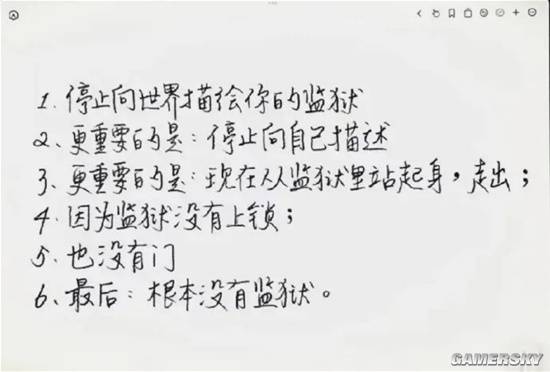 1、停止向世界描绘你的监狱
2、更重要的是：停止向自己描述
3、更重要的是：现在从监狱里站起身，走出；
4、因为监狱没有上锁；
5、也没有门
6、最后：根本没有监狱。
GAMERSKY